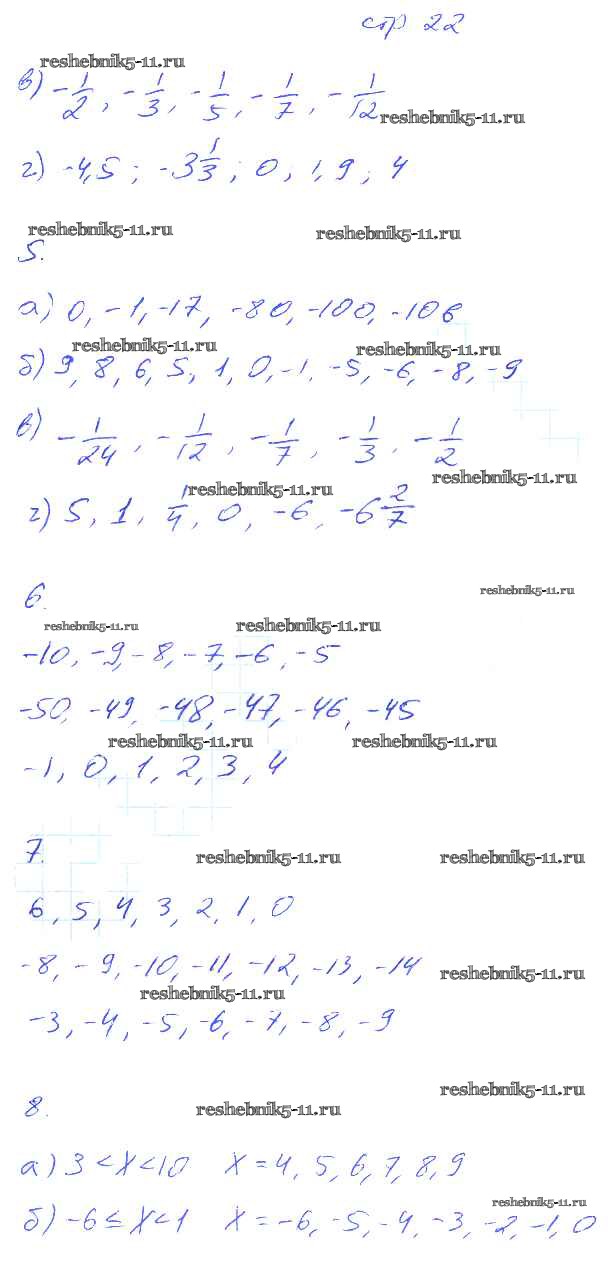 стр 22
reshebnik5-11.ru
в) -1/2, -1/3, -1/5, -1/7, -1/12
reshebnik5-11.ru
г) -4,5; -3 1/3; 0; 1,9; 4
reshebnik5-11.ru
reshebnik5-11.ru
5.
а) 0, -1, -17, -80, -100, -106
reshebnik5-11.ru
reshebnik5-11.ru
б) 9, 8, 6, 5, 1, 0, -1, -5, -6, -8, -9
в) -1/24, -1/12, -1/7, -1/3, -1/2
reshebnik5-11.ru
reshebnik5-11.ru
г) 5, 1, 1/4, 0, -6, -6 2/7
6.
reshebnik5-11.ru
reshebnik5-11.ru
reshebnik5-11.ru
-10, -9, -8, -7, -6, -5
-50, -49, -48, -47, -46, -45
reshebnik5-11.ru
reshebnik5-11.ru
-1, 0, 1, 2, 3, 4
7.
reshebnik5-11.ru
reshebnik5-11.ru
6, 5, 4, 3, 2, 1, 0
-8, -9, -10, -11, -12, -13, -14
reshebnik5-11.ru
reshebnik5-11.ru
-3, -4, -5, -6, -7, -8, -9
reshebnik5-11.ru
8.
reshebnik5-11.ru
а) 3 < x < 10 x = 4, 5, 6, 7, 8, 9
reshebnik5-11.ru
б) -6 ≤ x < 1 x = -6, -5, -4, -3, -2, -1, 0